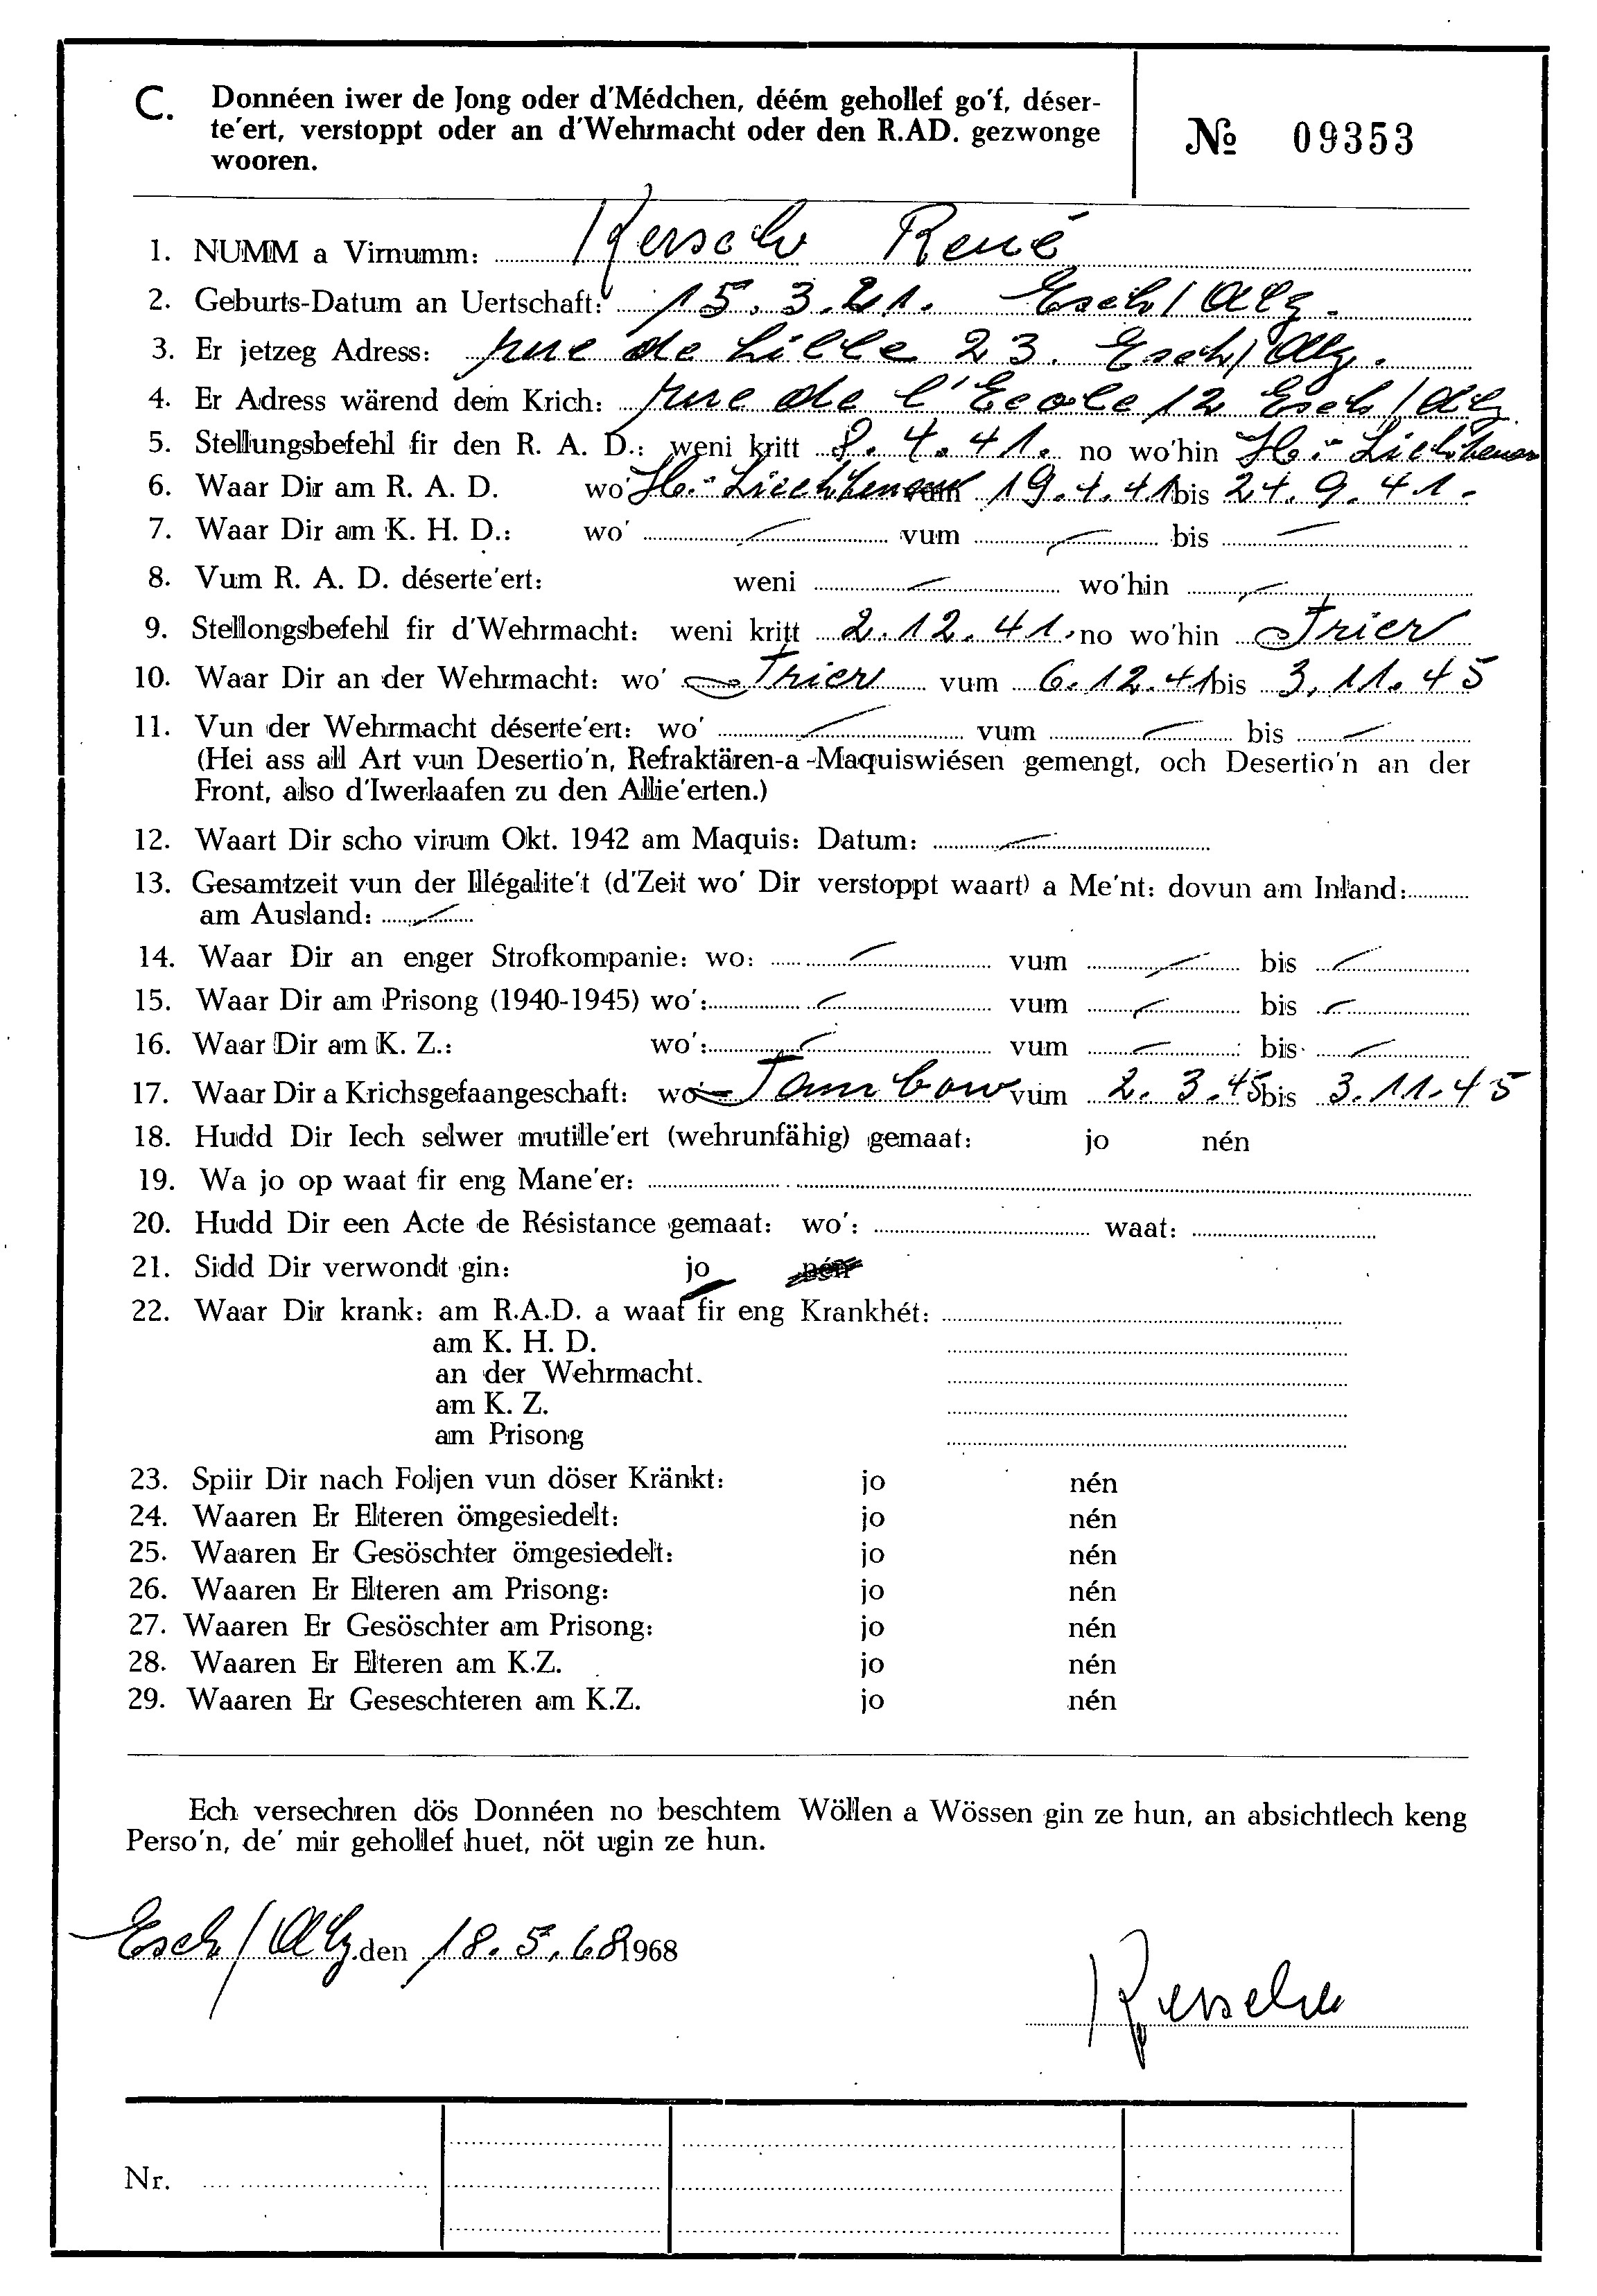 C. Donnéen iwer de Jong oder d'Médchen, déém gehollef go'f, déser-
te'ert, verstoppt oder an d'Wehrmacht oder den R.AD. gezwonge
wooren.
№ 09353
1. NUMM a Virnumm: Kersch René
2. Geburts-Datum an Uertschaft: 15.3.21. Esch/Alz.
3. Er jetzeg Adress: rue de Lille 23. Esch/Alz.
4. Er Adress wärend dem Krich: rue de l'Ecole 12 Esch/Alz
5. Stellungsbefehl fir den R. A. D.: weni kritt 8.4.41. no wo'hin H.-Liechtenau
6. Waar Dir am R. A. D. wo' H.-Liechtenau vum 19.4.41 bis 24.9.41.
7. Waar Dir am K. H. D.: wo' — vum — bis —
8. Vum R. A. D. déserte'ert: weni — wo'hin —
9. Stellongsbefehl fir d'Wehrmacht: weni kritt 2.12.41. no wo'hin Trier
10. Waar Dir an der Wehrmacht: wo' Trier vum 6.12.41 bis 3.11.45
11. Vun der Wehrmacht déserte'ert: wo' — vum — bis —
(Hei ass all Art vun Desertio'n, Refraktären-a-Maquiswiésen gemengt, och Desertio'n an der
Front, also d'Iwerlaafen zu den Allie'erten.)
12. Waart Dir scho virum Okt. 1942 am Maquis: Datum: —
13. Gesamtzeit vun der Illégalite't (d'Zeit wo' Dir verstoppt waart) a Me'nt: dovun am Inland:
am Ausland: —
14. Waar Dir an enger Strofkompanie: wo: — vum — bis —
15. Waar Dir am Prisong (1940-1945) wo': — vum — bis —
16. Waar Dir am K. Z.: wo': — vum — bis —
17. Waar Dir a Krichsgefaangeschaft: wo' Tambow vum 2.3.45 bis 3.11.45
18. Hudd Dir Iech selwer mutille'ert (wehrunfähig) gemaat: jo nén
19. Wa jo op waat fir eng Mane'er:
20. Hudd Dir een Acte de Résistance gemaat: wo': waat:
21. Sidd Dir verwondt gin: jo nén
22. Waar Dir krank: am R.A.D. a waat fir eng Krankhét:
am K. H. D.
an der Wehrmacht.
am K. Z.
am Prisong
23. Spiir Dir nach Foljen vun döser Kränkt: jo nén
24. Waaren Er Elteren ömgesiedelt: jo nén
25. Waaren Er Gesöschter ömgesiedelt: jo nén
26. Waaren Er Elteren am Prisong: jo nén
27. Waaren Er Gesöschter am Prisong: jo nén
28. Waaren Er Elteren am K.Z. jo nén
29. Waaren Er Geseschteren am K.Z. jo nén
Ech versechren dös Donnéen no beschtem Wöllen a Wössen gin ze hun, an absichtlech keng
Perso'n, de' mir gehollef huet, nöt ugin ze hun.
Esch/Alz. den 18.5.68 1968
Kersch
Nr.